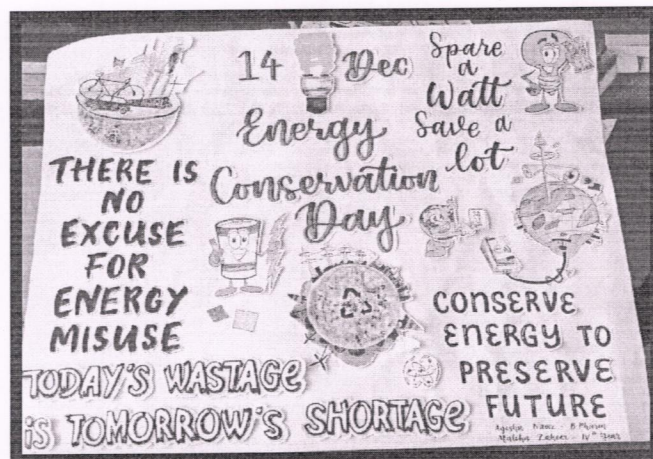 14 Dec
Energy
Conservation
Day
Spare
a
Watt
Save a
lot
THERE IS
NO
EXCUSE
FOR
ENERGY
MISUSE
CONSERVE
ENERGY TO
PRESERVE
FUTURE
TODAY'S WASTAGE
iS TOMORROW'S SHORTAGE
B Pharm
IVth Year